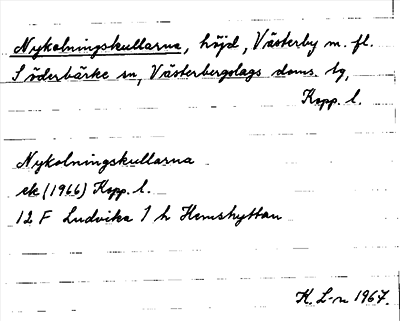 Nykolningskullarna, höjd, Västerby m. fl.
Söderbärke sn, Västerbergslags doms. tg,
Kopp. l.
Nykolningskullarna
ek (1966) Kopp. l.
12 F Ludvika 1 h Hemshyttan
K. L-n 1967.